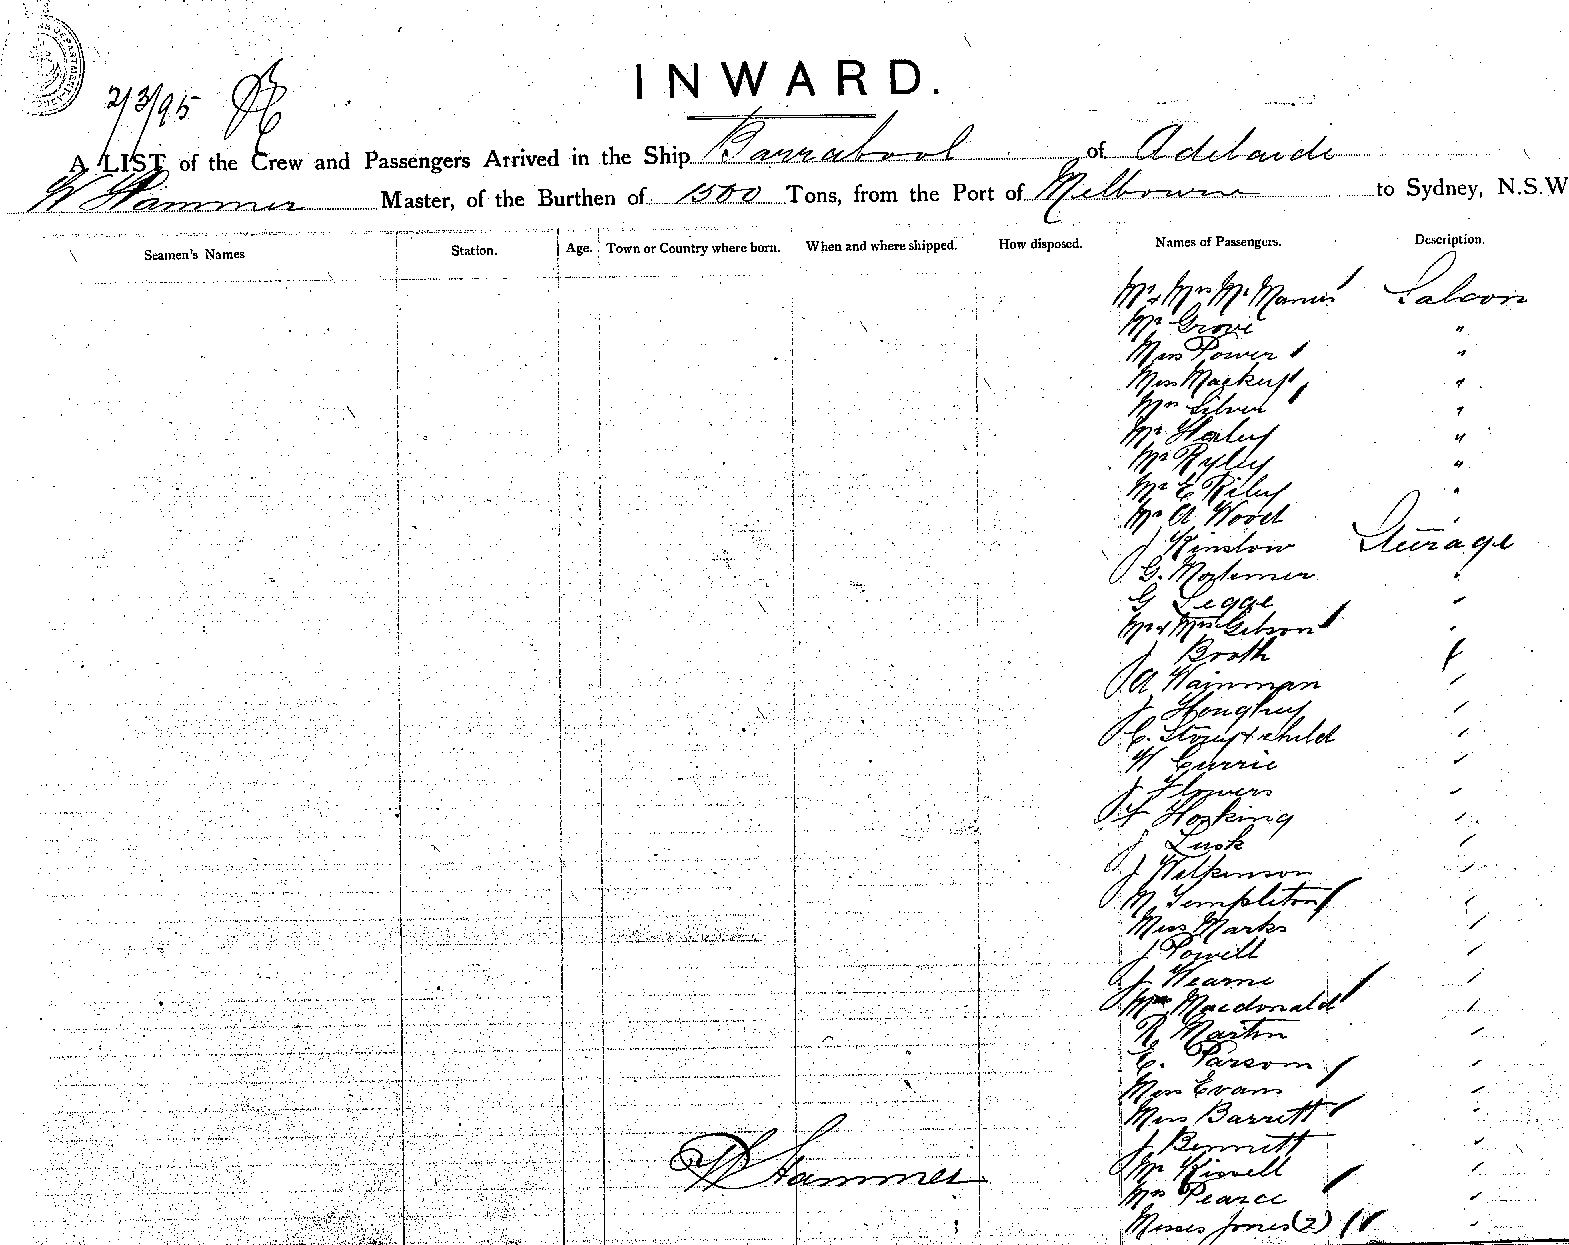 2/3/95
INWARD.
A LIST of the Crew and Passengers Arrived in the Ship Barrabool of Adelaide
W Hammer Master, of the Burthen of 1500 Tons, from the Port of Melbourne to Sydney, N.S.W
Seamen's Names Station. Age. Town or Country where born. When and where shipped. How disposed. Names of Passengers. Description.
Mr & Mrs Mc Manus Saloon
Mr Grove "
Miss Power "
Miss Mackey "
Mrs Silver "
Mr Healey "
Mr Ryley "
Mr E Riley "
Mr A Wood "
J Kinslow Steerage
G. Mortimer "
G Legge "
Mr & Mrs Gibson "
J Brath
A Wainman "
J Houghey "
C. Story & child "
W Currie "
J Flowers "
F Hosking "
J Lusk "
J Wilkinson "
M Templeton "
Miss Marks "
J Powell "
J Wearne "
Macdonald "
R Martin "
E. Parsons "
Miss Evans "
Miss Barrett "
J Bennett "
Mr Kinnell "
Mrs Pearce "
Misses Jones (2) "
W Hammer